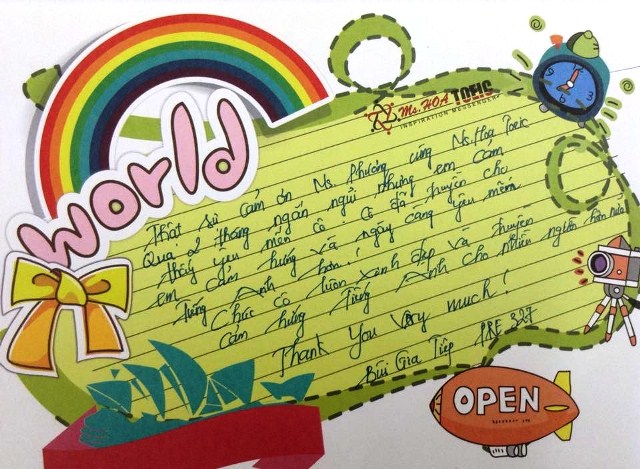 Ms. HOA TOEIC
INSPIRATION MESSENGER
world
Thật sự cảm ơn Ms. Phương cùng Ms Hoa Toeic
Qua 2 tháng ngắn ngủi nhưng em cảm
thấy yêu mến cô. Cô đã truyền cho
em cảm hứng và ngày càng yêu mến
Tiếng Anh hơn!
Chúc cô luôn xinh đẹp và truyền
cảm hứng Tiếng Anh cho nhiều người hơn nữa
Thank You Very much!
Bùi Gia Tiệp PRE 327
OPEN